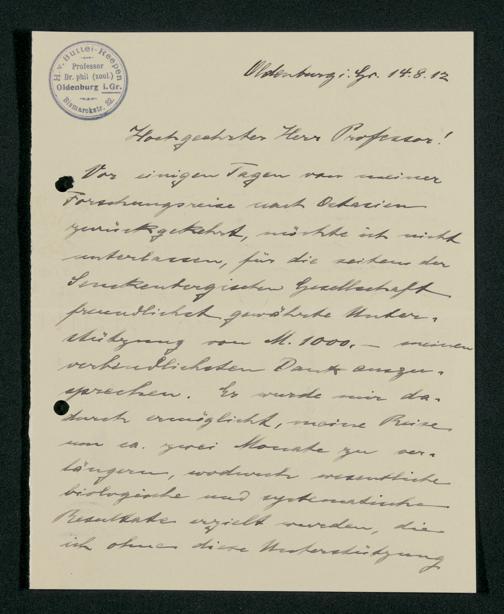 H. v. Buttel-Reepen
Professor
Dr. phil (zool.)
Oldenburg i.Gr.
Bismarckstr. 32.
Oldenburg i. Gr. 14.8.12
Hochgeehrter Herr Professor!
Vor einigen Tagen von meiner
Forschungsreise nach Ostasien
zurückgekehrt, möchte ich nicht
unterlassen, für die seitens der
Senckenbergischen Gesellschaft
freundlichst gewährte Unter-
stützung von M. 1000.— meinen
verbindlichsten Dank auszu-
sprechen. Es wurde mir da-
durch ermöglicht, meine Reise
um ca. zwei Monate zu ver-
längern, wodurch wesentliche
biologische und systematische
Resultate erzielt wurden, die
ich ohne diese Unterstützung